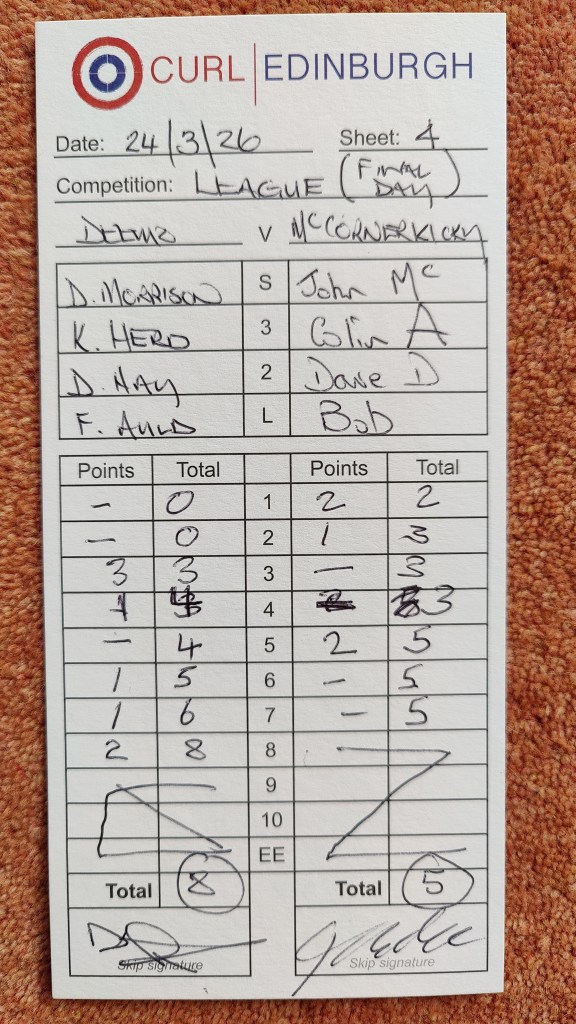 CURL | EDINBURGH
Date: 24/3/26 Sheet: 4
Competition: LEAGUE (FINAL DAY)
V McCORNERKICKY
D. MORRISON S John Mc
K. HERD 3 Colin A
D. HAY 2 Dave D
F. AULD L Bob
Points Total Points Total
– 0 1 2 2
– 0 2 1 3
3 3 3 – 3
1 4 4 3
– 4 5 2 5
1 5 6 – 5
1 6 7 – 5
2 8 8 –
9
10
EE
Total 8 Total 5
Skip signature Skip signature